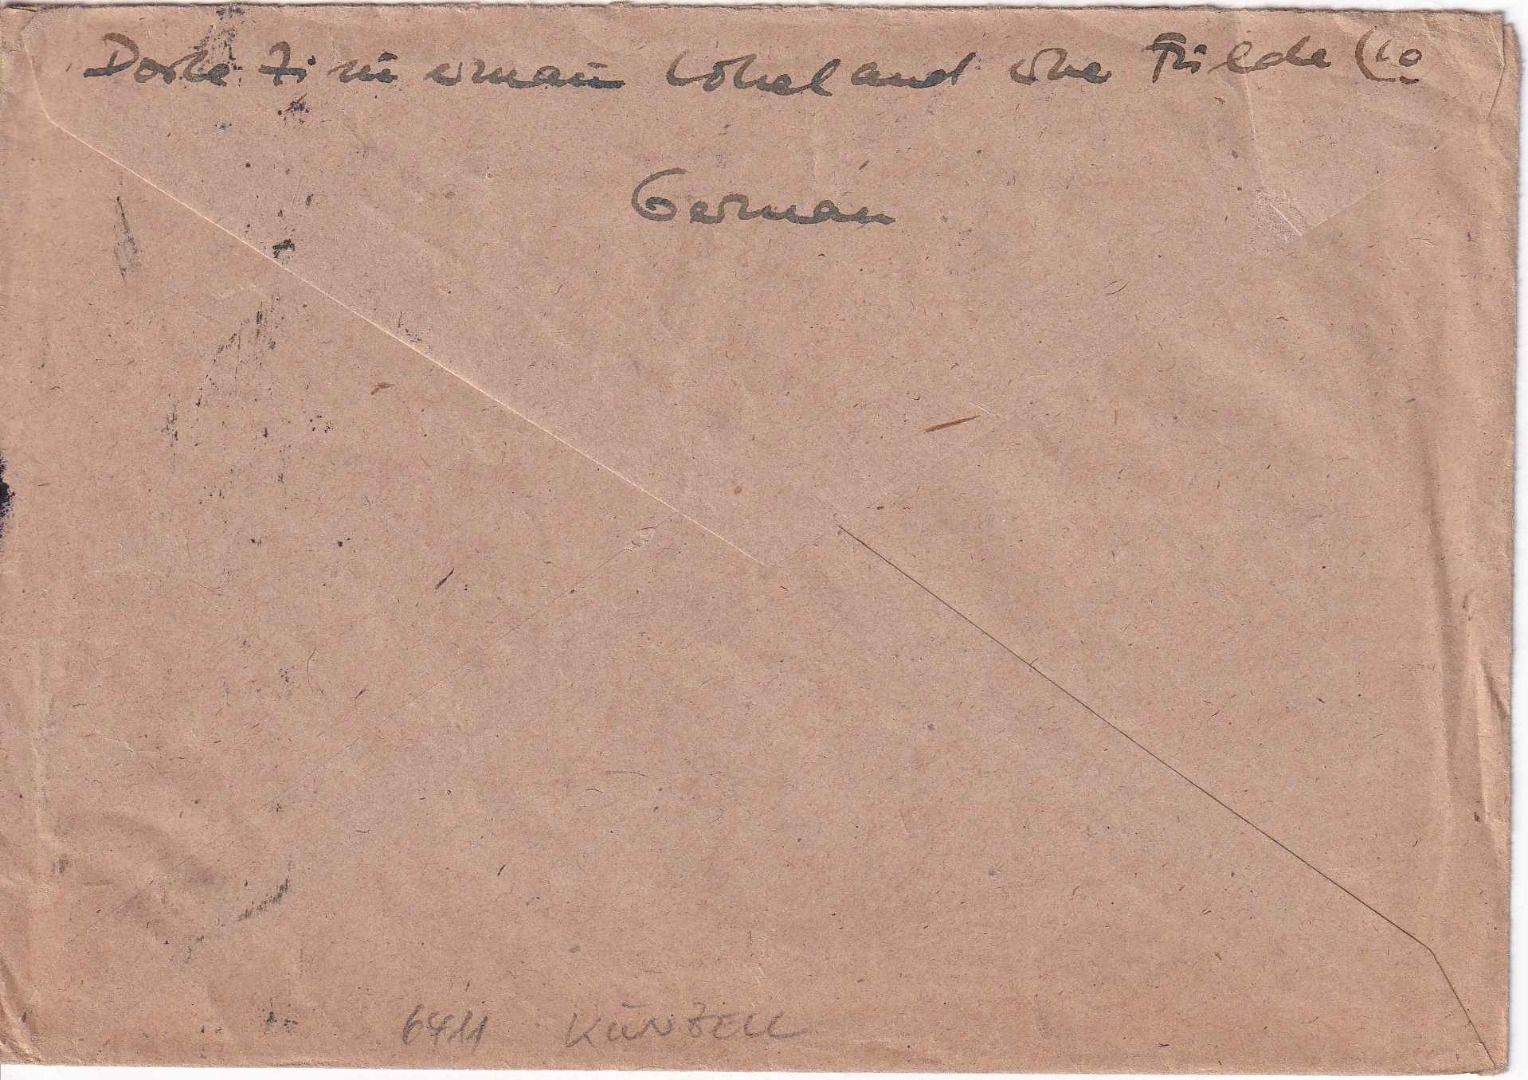 Dorle Zimmermann Loheland über Fulda (10
German
6411 KÜNZELL